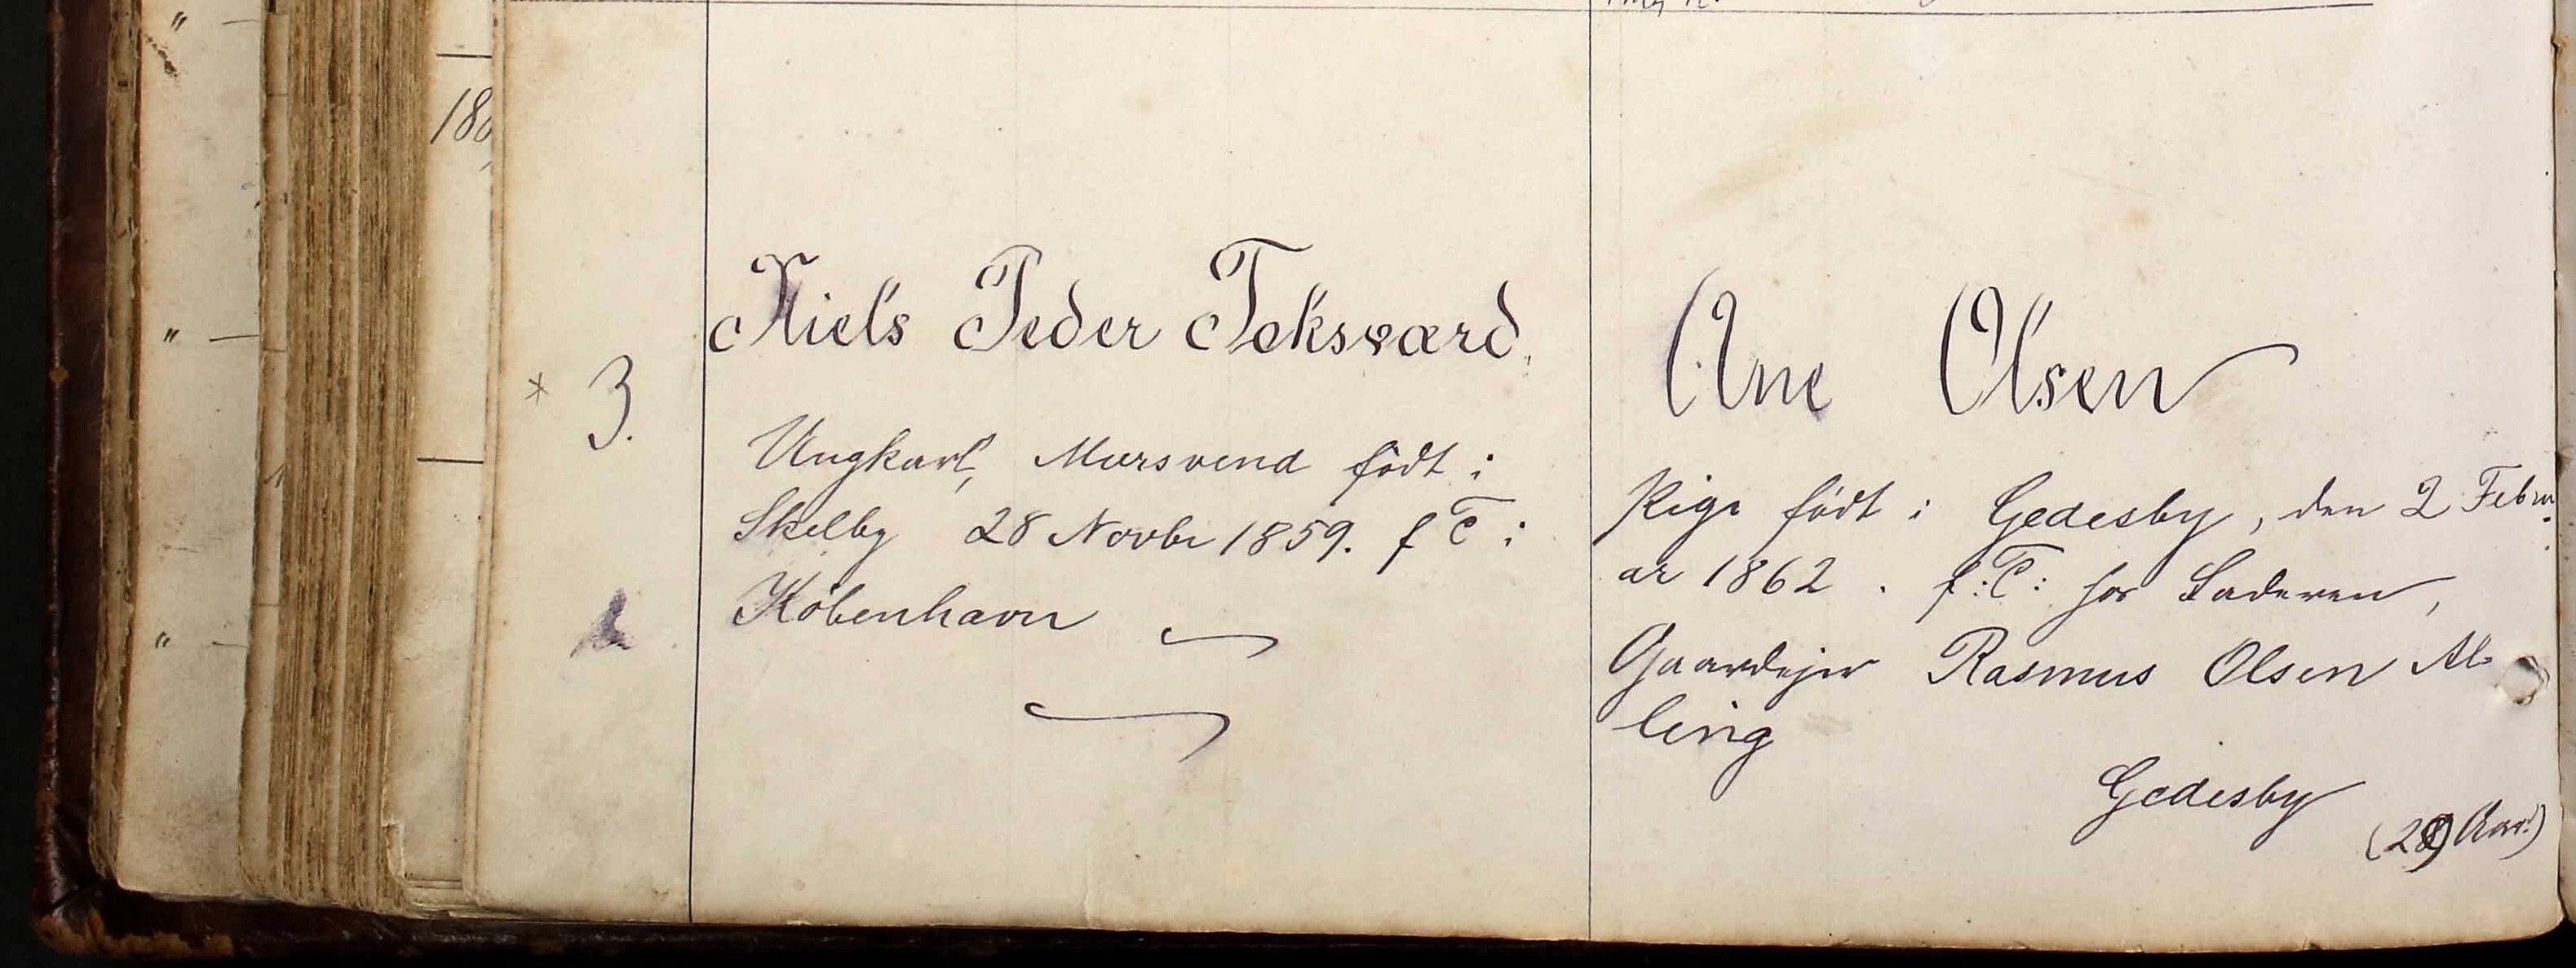 180
* 3.
Niels Peder Toksværd.
Ungkarl, Mursvend født i
Skelby 28 Novbr 1859. f T i
København
Ane Olsen
Pige født i Gedesby, den 2 Febru
ar 1862. f: T: hos Faderen,
Gaardejer Rasmus Olsen Al-
ling
Gedesby
Aar!)